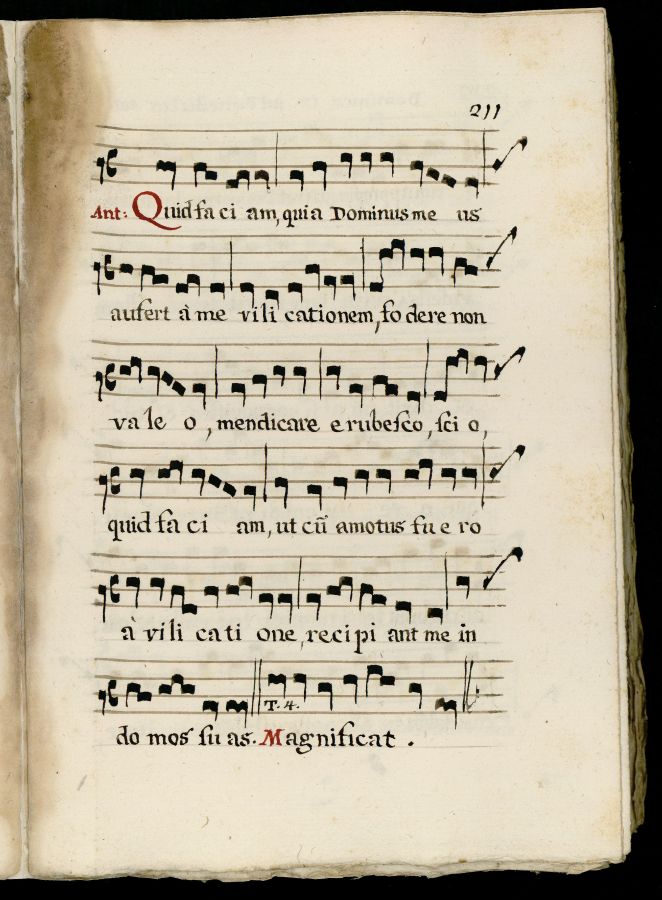 211
Ant: Quid fa ci am, quia Dominus me us
aufert à me vi li cationem, fo dere non
va le o, mendicare e rubesco, sci o,
quid fa ci am, ut cū amotus fu e ro
à vi li cati one, reci pi ant me in
T. 4.
do mos su as. Magnificat.